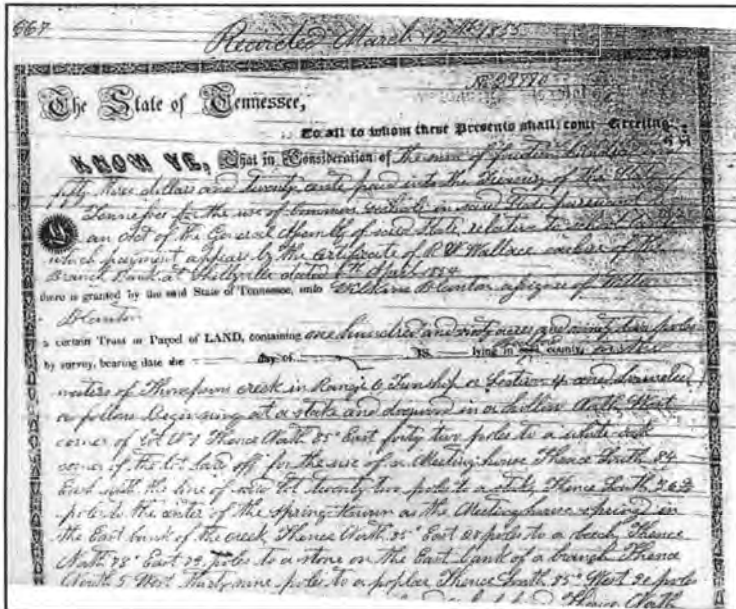 667
Recorded March 12th 1855
No 23970
The State of Tennessee,
To all to whom these Presents shall come Greeting:
KNOW YE, That in Consideration of the sum of fourteen hundred
fifty three dollars and twenty cents paid into the Treasury of the State of
Tennessee for the use of Common Schools in said State pursuant to
an act of the General Assembly of said State, relative to school lands
which payment appears by the Certificate of R W Wallace cashier of the
Branch Bank at Shelbyville dated 6th April 1854
there is granted by the said State of Tennessee, unto Wilkins Blanton assignee of
Blanton
a certain Tract or Parcel of LAND, containing one hundred and sixty acres and ninety two poles
by survey, bearing date the day of 18 lying in said county, on the
waters of Thompsons creek in Range 6 Township Section 4 and
as follows Beginning at a stake and dogwood in a hollow North West
corner of Lot No 1 Thence North 85° East forty two poles to a white oak
corner of the lot laid off for the use of a Meeting house Thence South 84
East with the line of said lot twenty two poles to a stake Thence South
poles to the center of the Spring known as the Meeting house spring in
the East bank of the creek Thence North 85° East 28 poles to a beech Thence
North 78° East poles to a stone on the East bank of a branch Thence
North 5 West thirty nine poles to a poplar Thence South 85° West 20 poles